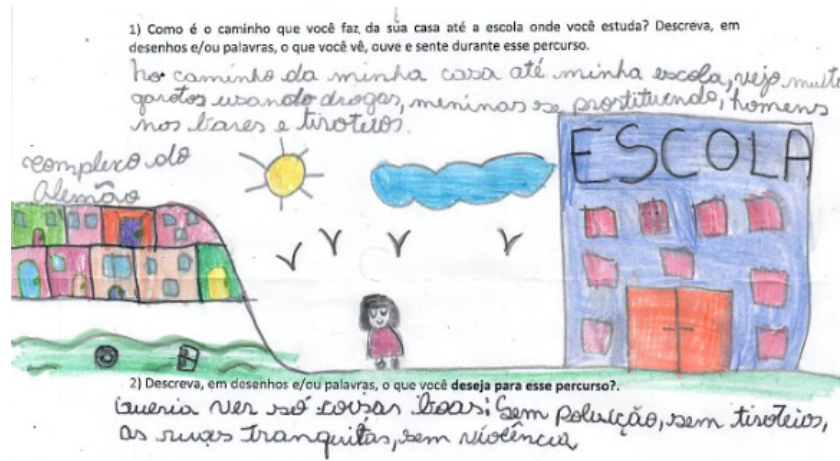 1) Como é o caminho que você faz da sua casa até a escola onde você estuda? Descreva, em
desenhos e/ou palavras, o que você vê, ouve e sente durante esse percurso.
no caminho da minha casa até minha escola, vejo muito
garotos usando drogas, meninas se prostituindo, homens
nos bares e tiroteios.
complexo do
Alemão
ESCOLA
2) Descreva, em desenhos e/ou palavras, o que você deseja para esse percurso?.
Queria ver só coisas boas: Sem poluição, sem tiroteios,
as ruas tranquilas, sem violência